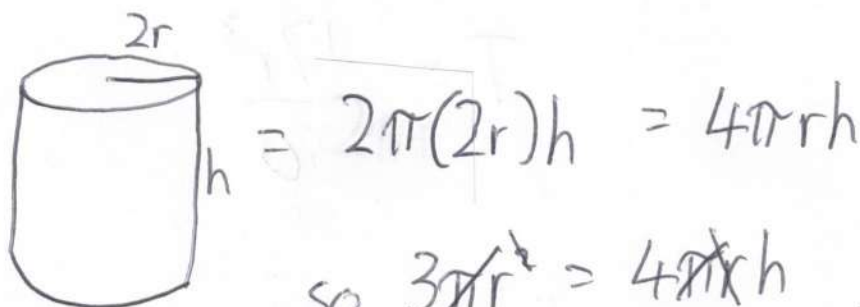 2r
h = 2π(2r)h = 4πrh
so 3πr² = 4πrh